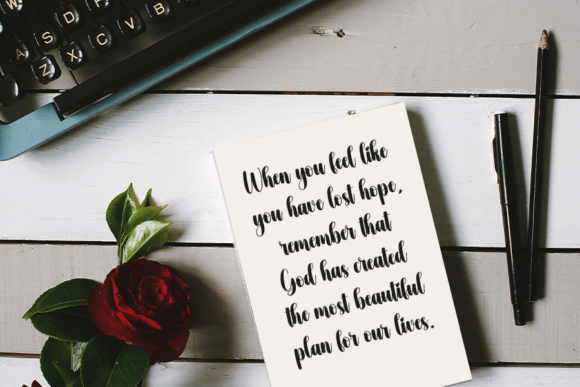 W
A S D F
Z X C V B
When you feel like
you have lost hope,
remember that
God has created
the most beautiful
plan for our lives.